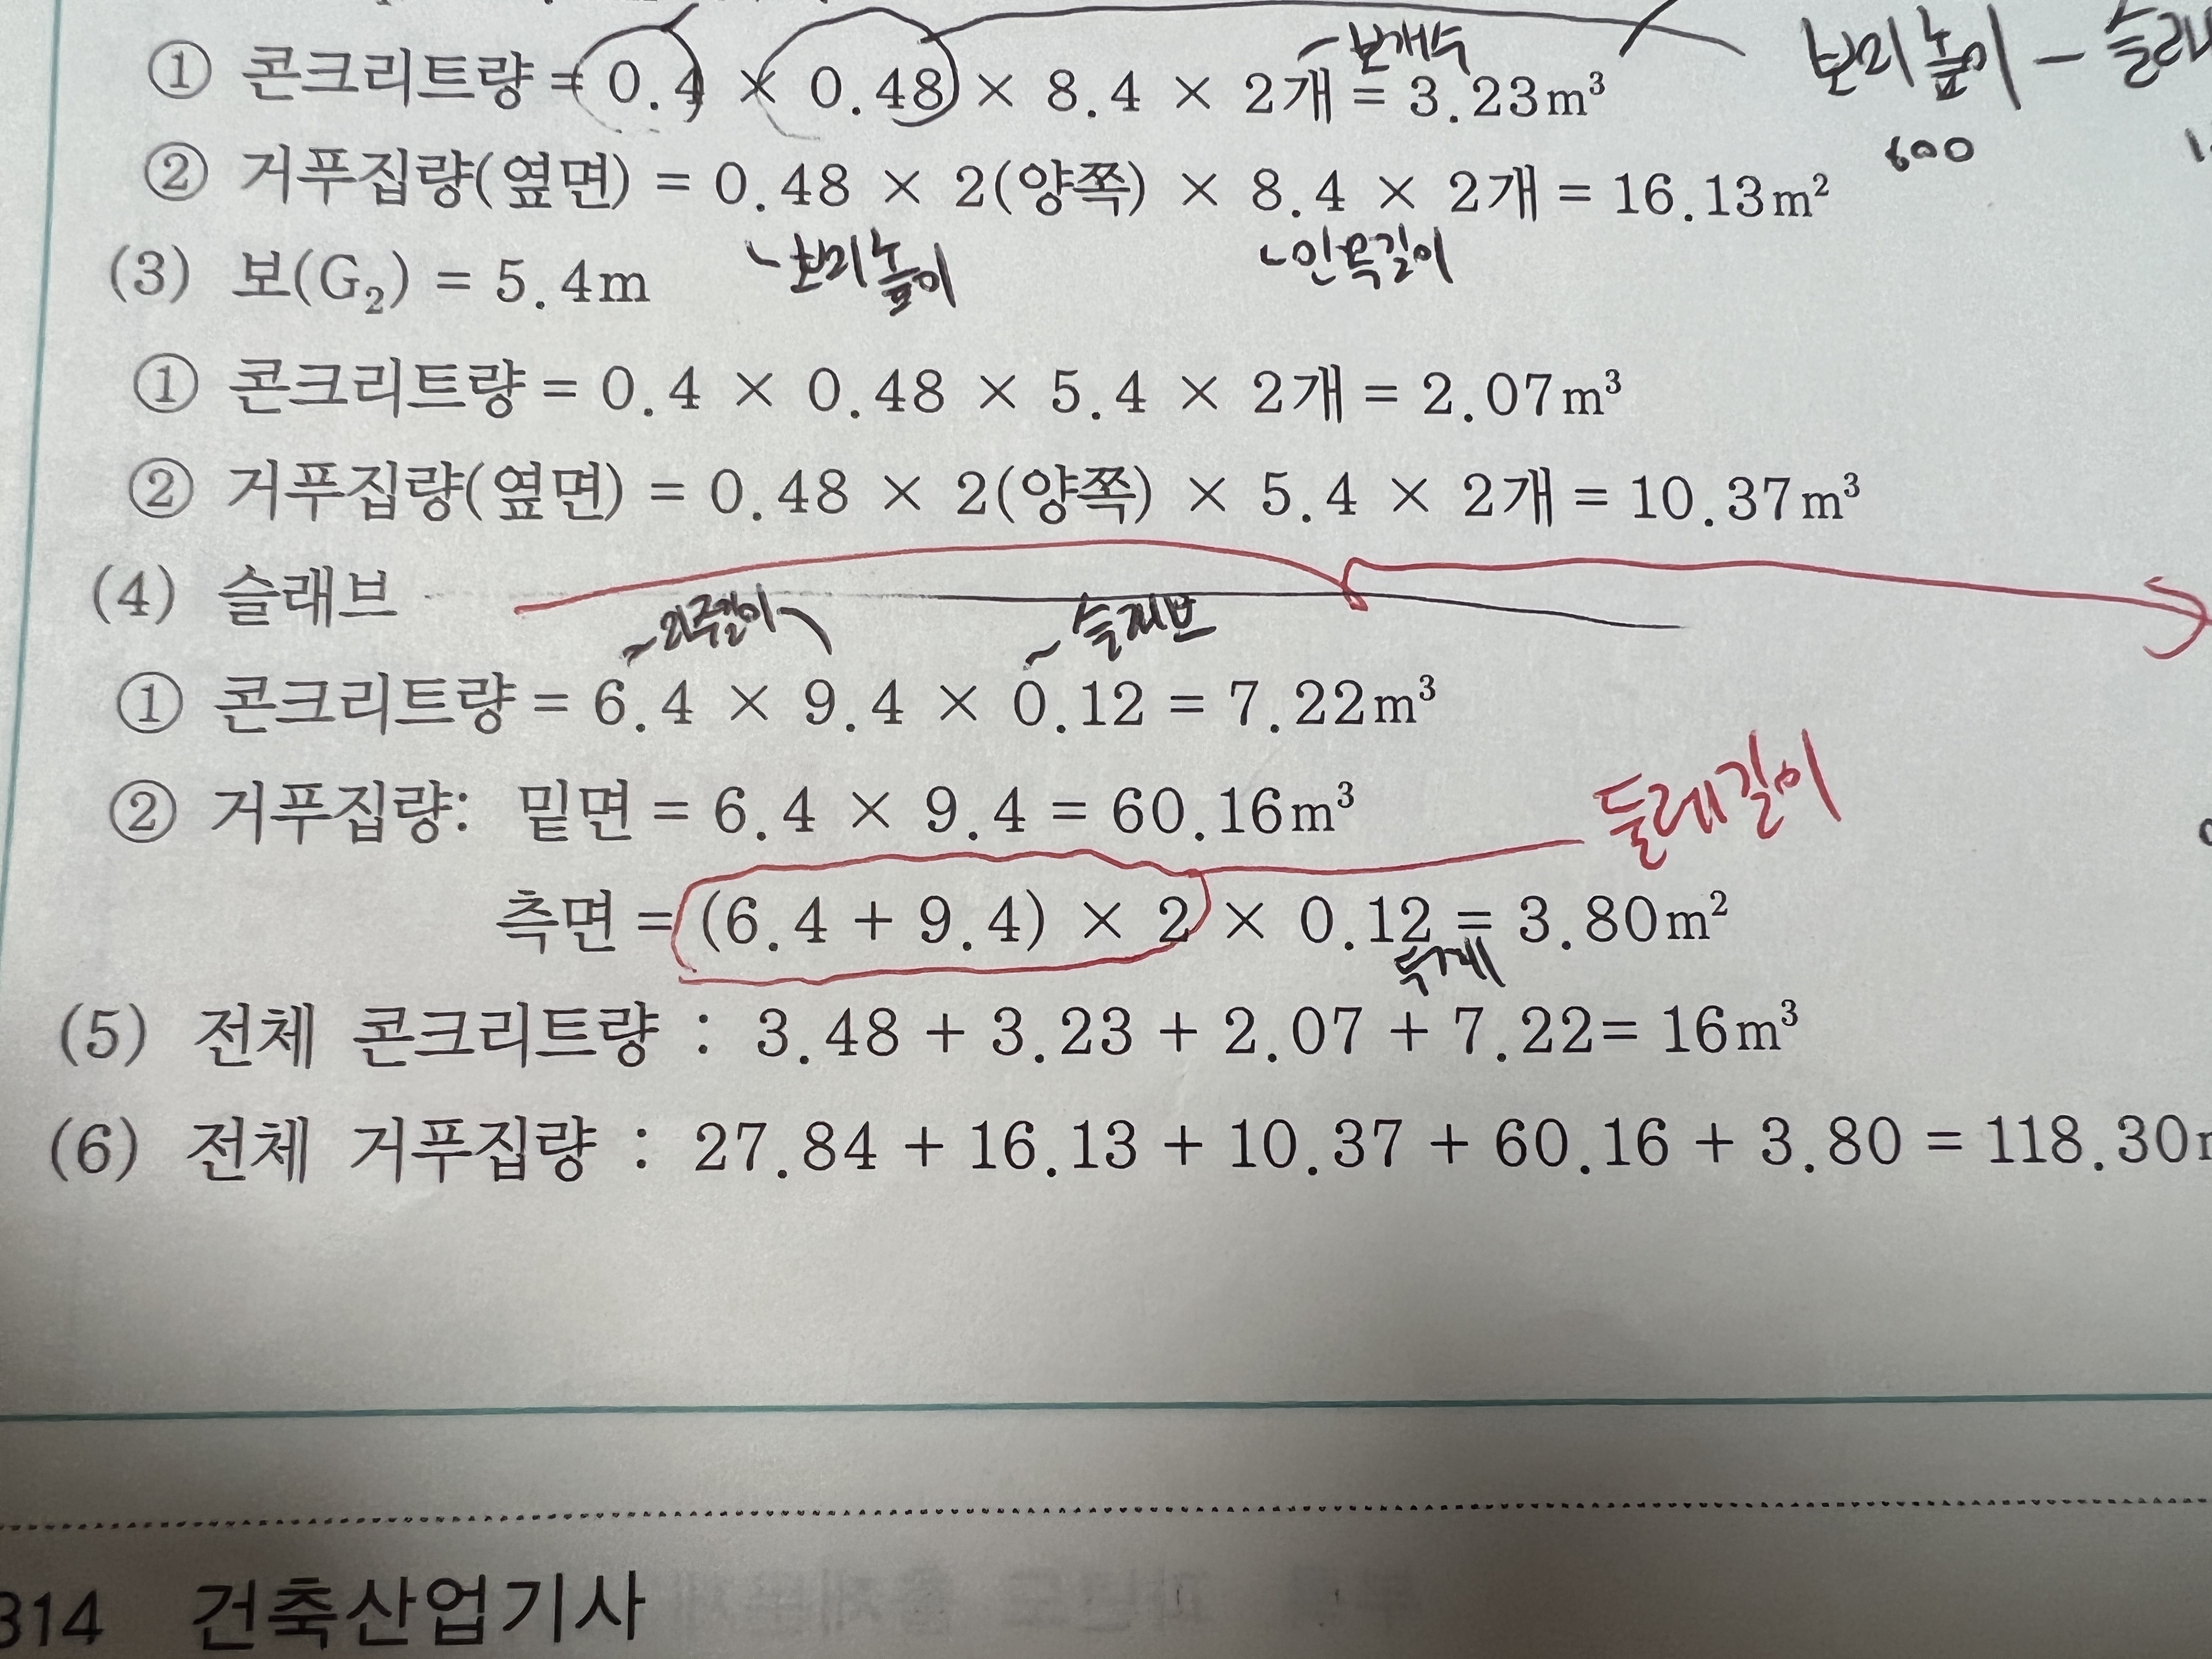 보개수
① 콘크리트량 = 0.4 × 0.48 × 8.4 × 2개 = 3.23m³
보의 높이 - 슬래
600
② 거푸집량(옆면) = 0.48 × 2(양쪽) × 8.4 × 2개 = 16.13m²
보의 높이 안목길이
(3) 보(G₂) = 5.4m
① 콘크리트량 = 0.4 × 0.48 × 5.4 × 2개 = 2.07m³
② 거푸집량(옆면) = 0.48 × 2(양쪽) × 5.4 × 2개 = 10.37m³
(4) 슬래브
외주길이 슬래브
① 콘크리트량 = 6.4 × 9.4 × 0.12 = 7.22m³
② 거푸집량: 밑면 = 6.4 × 9.4 = 60.16m³
둘레길이
측면 = (6.4 + 9.4) × 2 × 0.12 = 3.80m²
두께
(5) 전체 콘크리트량 : 3.48 + 3.23 + 2.07 + 7.22 = 16m³
(6) 전체 거푸집량 : 27.84 + 16.13 + 10.37 + 60.16 + 3.80 = 118.30
314 건축산업기사